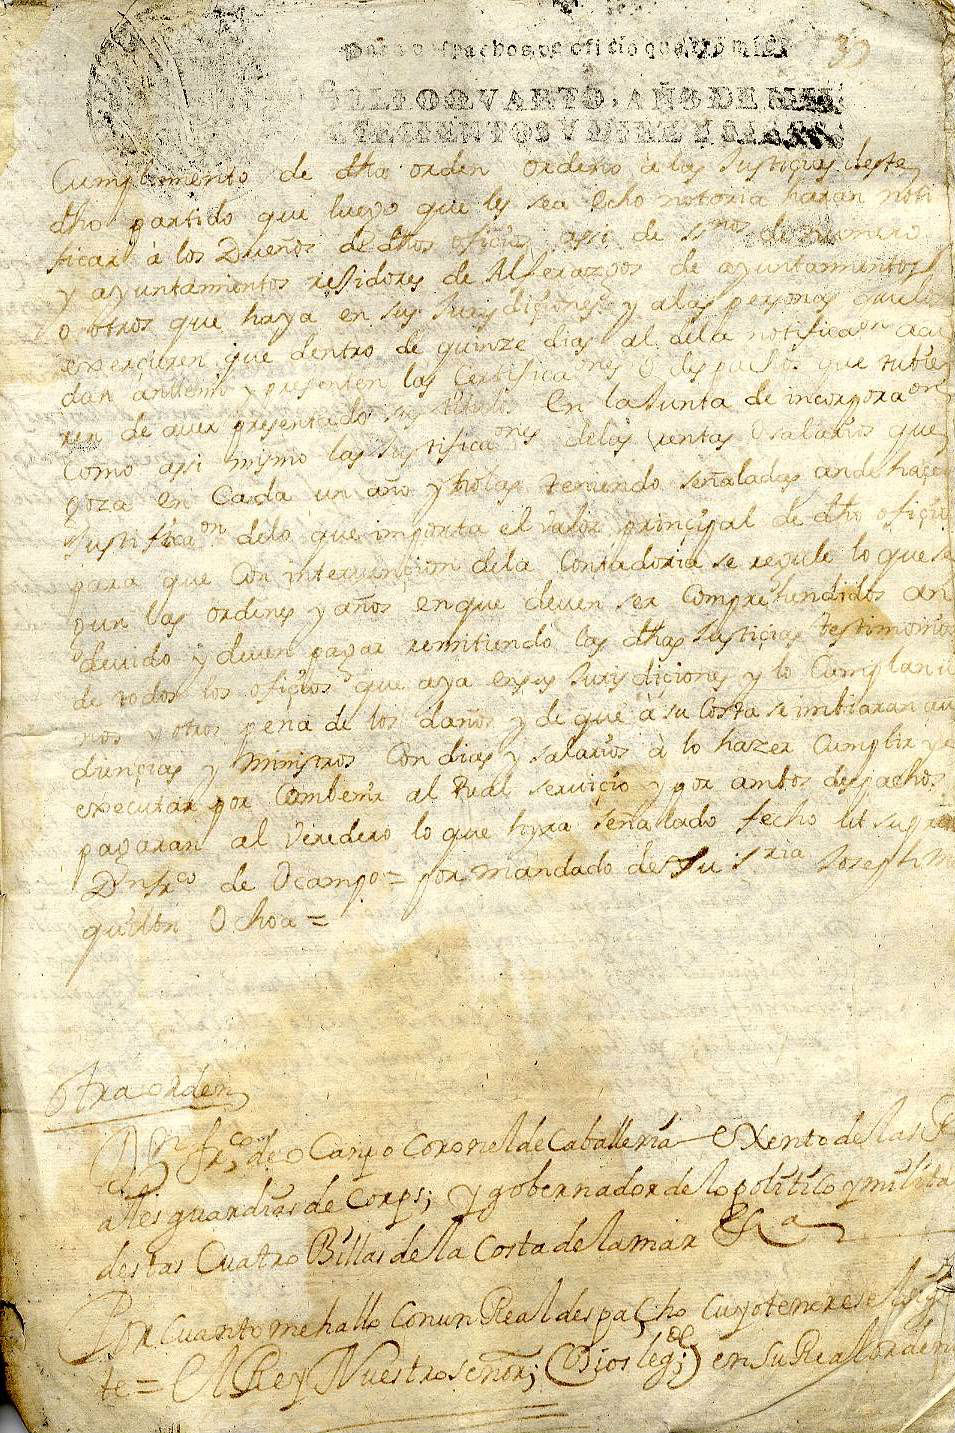 39
Para despachos de oficio quatro mrs
SELLO QVARTO, AÑO DE MIL
SETECIENTOS Y DIEZ Y
Cumplimiento de dha orden ordeno a las Justicias deste
dho partido que luego que les sea Echo notoria haran noti
ficar à los Dueños de dhos ofiçios asi de ssnos de numero
y ayuntamientos rejidores de Alferazgos de ayuntamientos
o otros que haya en sus Jurisdiçiones y alas personas que los
exerçieren que dentro de quinze dias al dela notificaon acu
dan antemi y presenten las Certificaones o despachos que tubie
ren de aver presentado sus titulos En la Junta de incorporaon
Como asi mismo las Justificaones delas rentas salarios que
goza en Cada un año y no las teniendo señaladas ande hacer
Justificaon delo que importa el valor prinçipal de dho ofiçio
para que Con intervençion dela Contaduria se regule lo que se
gun las ordenes y años en que deven ser Comprehendidos an
devido y deven pagar remitiendo las dhas Justiçias testimonios
de todos los ofiçios que aya en sus Jurisdiçiones y lo Cumplan u
nos y otros pena de los daños y de que à su Costa se imbiaran au
diençias y ministros Con dias y salarios à lo hazer Cumplir y
executar por Combenir al Real serviçio y por ambos despachos
pagaran al Veredero lo que hira señalado fecho Ut supra
Dn frco de Ocampo = por mandado de su sria Joseph M
guillon Ochoa =
Otra orden
Dn frco de o Campo Coronel de Caballeria exento de las R
ales guardias de Corps; y gobernador de lo politico y milita
destas Cuatro Billas de la Costa de la mar &a
Por Cuanto me hallo Con un Real despacho Cuyo tenor es el sigu
te = El Rey Nuestro señor; (Dios legde) en su Real orden